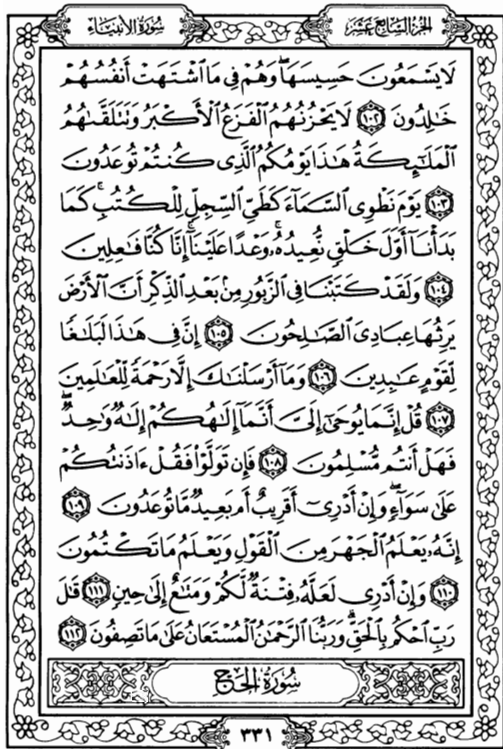 سُورَةُ الأَنبِيَاءِ الجُزْءُ السَّابِعَ عَشَرَ
لَا يَسْمَعُونَ حَسِيسَهَا ۖ وَهُمْ فِى مَا ٱشْتَهَتْ أَنفُسُهُمْ
خَٰلِدُونَ ١٠٢ لَا يَحْزُنُهُمُ ٱلْفَزَعُ ٱلْأَكْبَرُ وَتَتَلَقَّىٰهُمُ
ٱلْمَلَٰٓئِكَةُ هَٰذَا يَوْمُكُمُ ٱلَّذِى كُنتُمْ تُوعَدُونَ
١٠٣ يَوْمَ نَطْوِى ٱلسَّمَآءَ كَطَىِّ ٱلسِّجِلِّ لِلْكُتُبِ ۚ كَمَا
بَدَأْنَآ أَوَّلَ خَلْقٍ نُّعِيدُهُۥ ۚ وَعْدًا عَلَيْنَآ ۚ إِنَّا كُنَّا فَٰعِلِينَ
١٠٤ وَلَقَدْ كَتَبْنَا فِى ٱلزَّبُورِ مِنۢ بَعْدِ ٱلذِّكْرِ أَنَّ ٱلْأَرْضَ
يَرِثُهَا عِبَادِىَ ٱلصَّٰلِحُونَ ١٠٥ إِنَّ فِى هَٰذَا لَبَلَٰغًا
لِّقَوْمٍ عَٰبِدِينَ ١٠٦ وَمَآ أَرْسَلْنَٰكَ إِلَّا رَحْمَةً لِّلْعَٰلَمِينَ
١٠٧ قُلْ إِنَّمَا يُوحَىٰٓ إِلَىَّ أَنَّمَآ إِلَٰهُكُمْ إِلَٰهٌ وَٰحِدٌ ۖ
فَهَلْ أَنتُم مُّسْلِمُونَ ١٠٨ فَإِن تَوَلَّوْا۟ فَقُلْ ءَاذَنتُكُمْ
عَلَىٰ سَوَآءٍ ۖ وَإِنْ أَدْرِىٓ أَقَرِيبٌ أَم بَعِيدٌ مَّا تُوعَدُونَ ١٠٩
إِنَّهُۥ يَعْلَمُ ٱلْجَهْرَ مِنَ ٱلْقَوْلِ وَيَعْلَمُ مَا تَكْتُمُونَ
١١٠ وَإِنْ أَدْرِى لَعَلَّهُۥ فِتْنَةٌ لَّكُمْ وَمَتَٰعٌ إِلَىٰ حِينٍ ١١١ قَٰلَ
رَبِّ ٱحْكُم بِٱلْحَقِّ ۗ وَرَبُّنَا ٱلرَّحْمَٰنُ ٱلْمُسْتَعَانُ عَلَىٰ مَا تَصِفُونَ ١١٢
سُورَةُ الحَجِّ
٣٣١